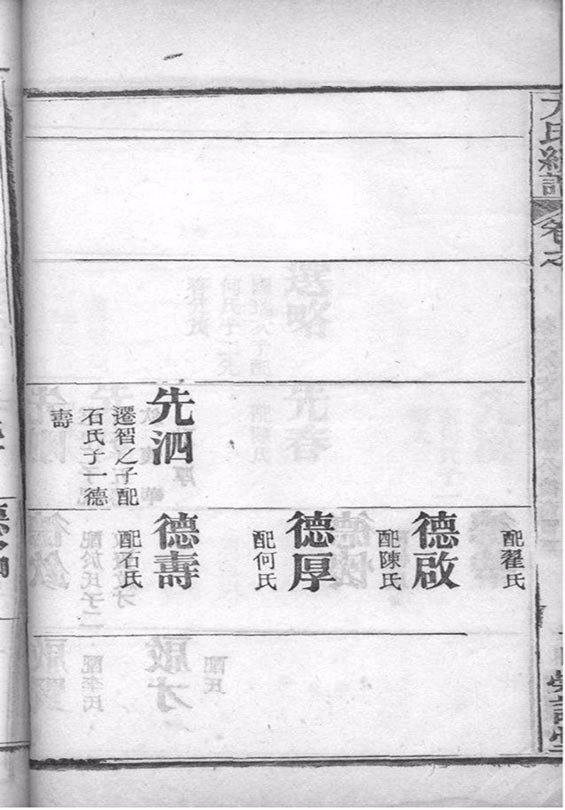 卷之
先泗
遷智之子配
石氏子一德
壽
配翟氏
德啟
配陳氏
德厚
配何氏
德壽
配石氏